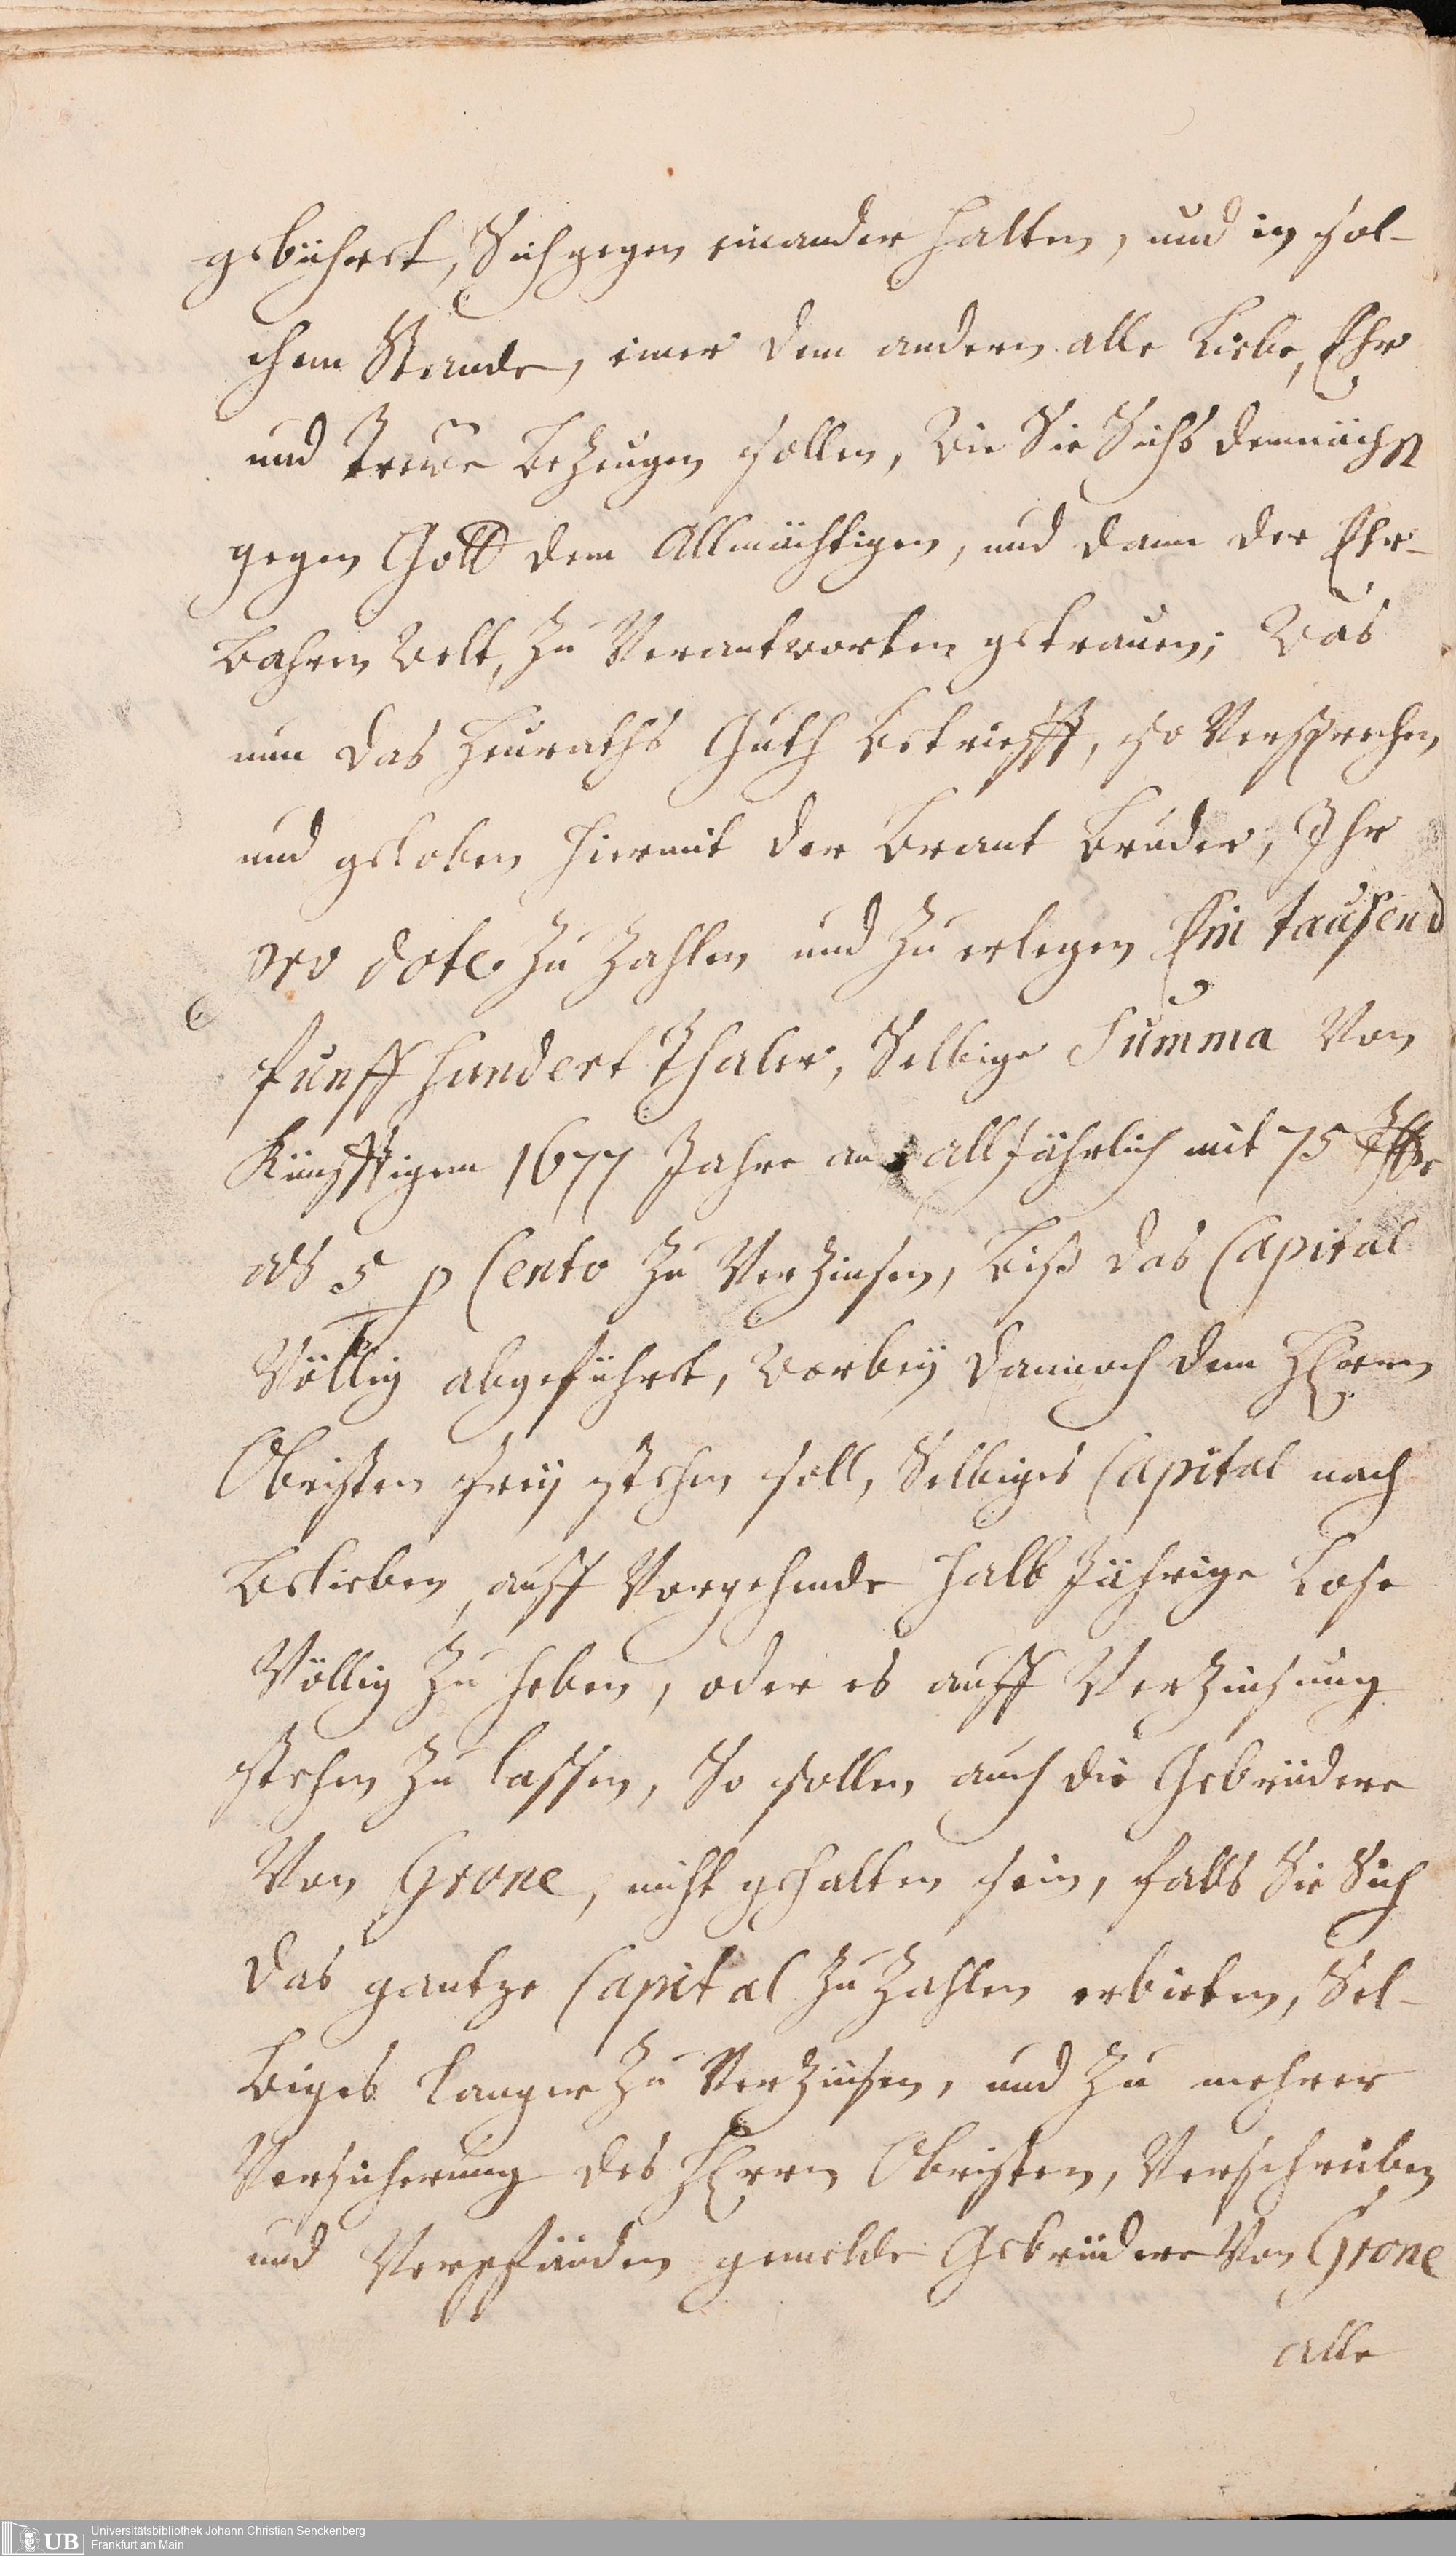 gebühret, Sich gegen einander halten, und in sol-
chem Stande, einer dem andern alle Liebe, Ehr
und Treüe bezeugen sollen, Wie Sie Sichs demnächst
gegen Gott dem Allmächtigen, und dann der Ehr-
bahren Welt, zu Verantworten getrauen; Was
nun das Heuraths Guth betriefft, so Versprechen
und geloben hiermit der Braut Brüder, Ihr
pro dote zu zahlen und zu erlegen Ein tausend
funff hundert Thaler, Selbige Summa Von
Künfftigem 1677 Jahre an alljährlich mit 75 Thlr
als 5 p Cento zu Verzinsen, biß das Capital
Völlig abgeführet, worbey dannoch dem Herrn
Obristen frey stehen soll, Selbiges Capital nach
belieben, auff Vorgehende halb Jährige Lose
Völlig zu heben, oder es auff Verzinsung
stehen zu lassen, So sollen auch die Gebrüdere
Von Grone, nicht gehalten sein, falls Sie Sich
das gantze Capital zu zahlen erbieten, Sel-
biges langer zu Verzinsen, und zu mehrer
Versicherung des Herrn Obristen, Verschreiben
und Verpfänden gemelde Gebrüdere Von Grone
alle
UB Universitätsbibliothek Johann Christian Senckenberg
Frankfurt am Main